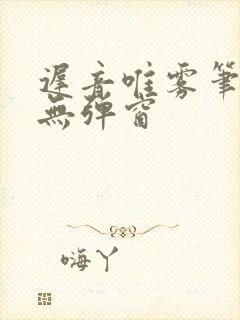 遲音唯雾筆
無弹窗
嗨丫